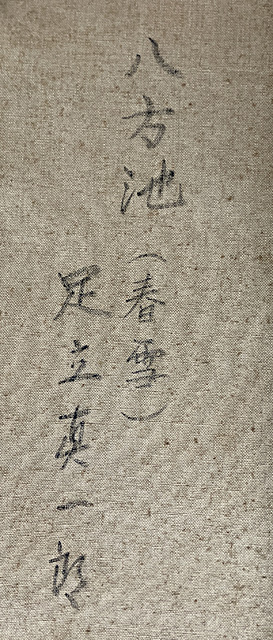 八方池（春雪）
足立真一郎